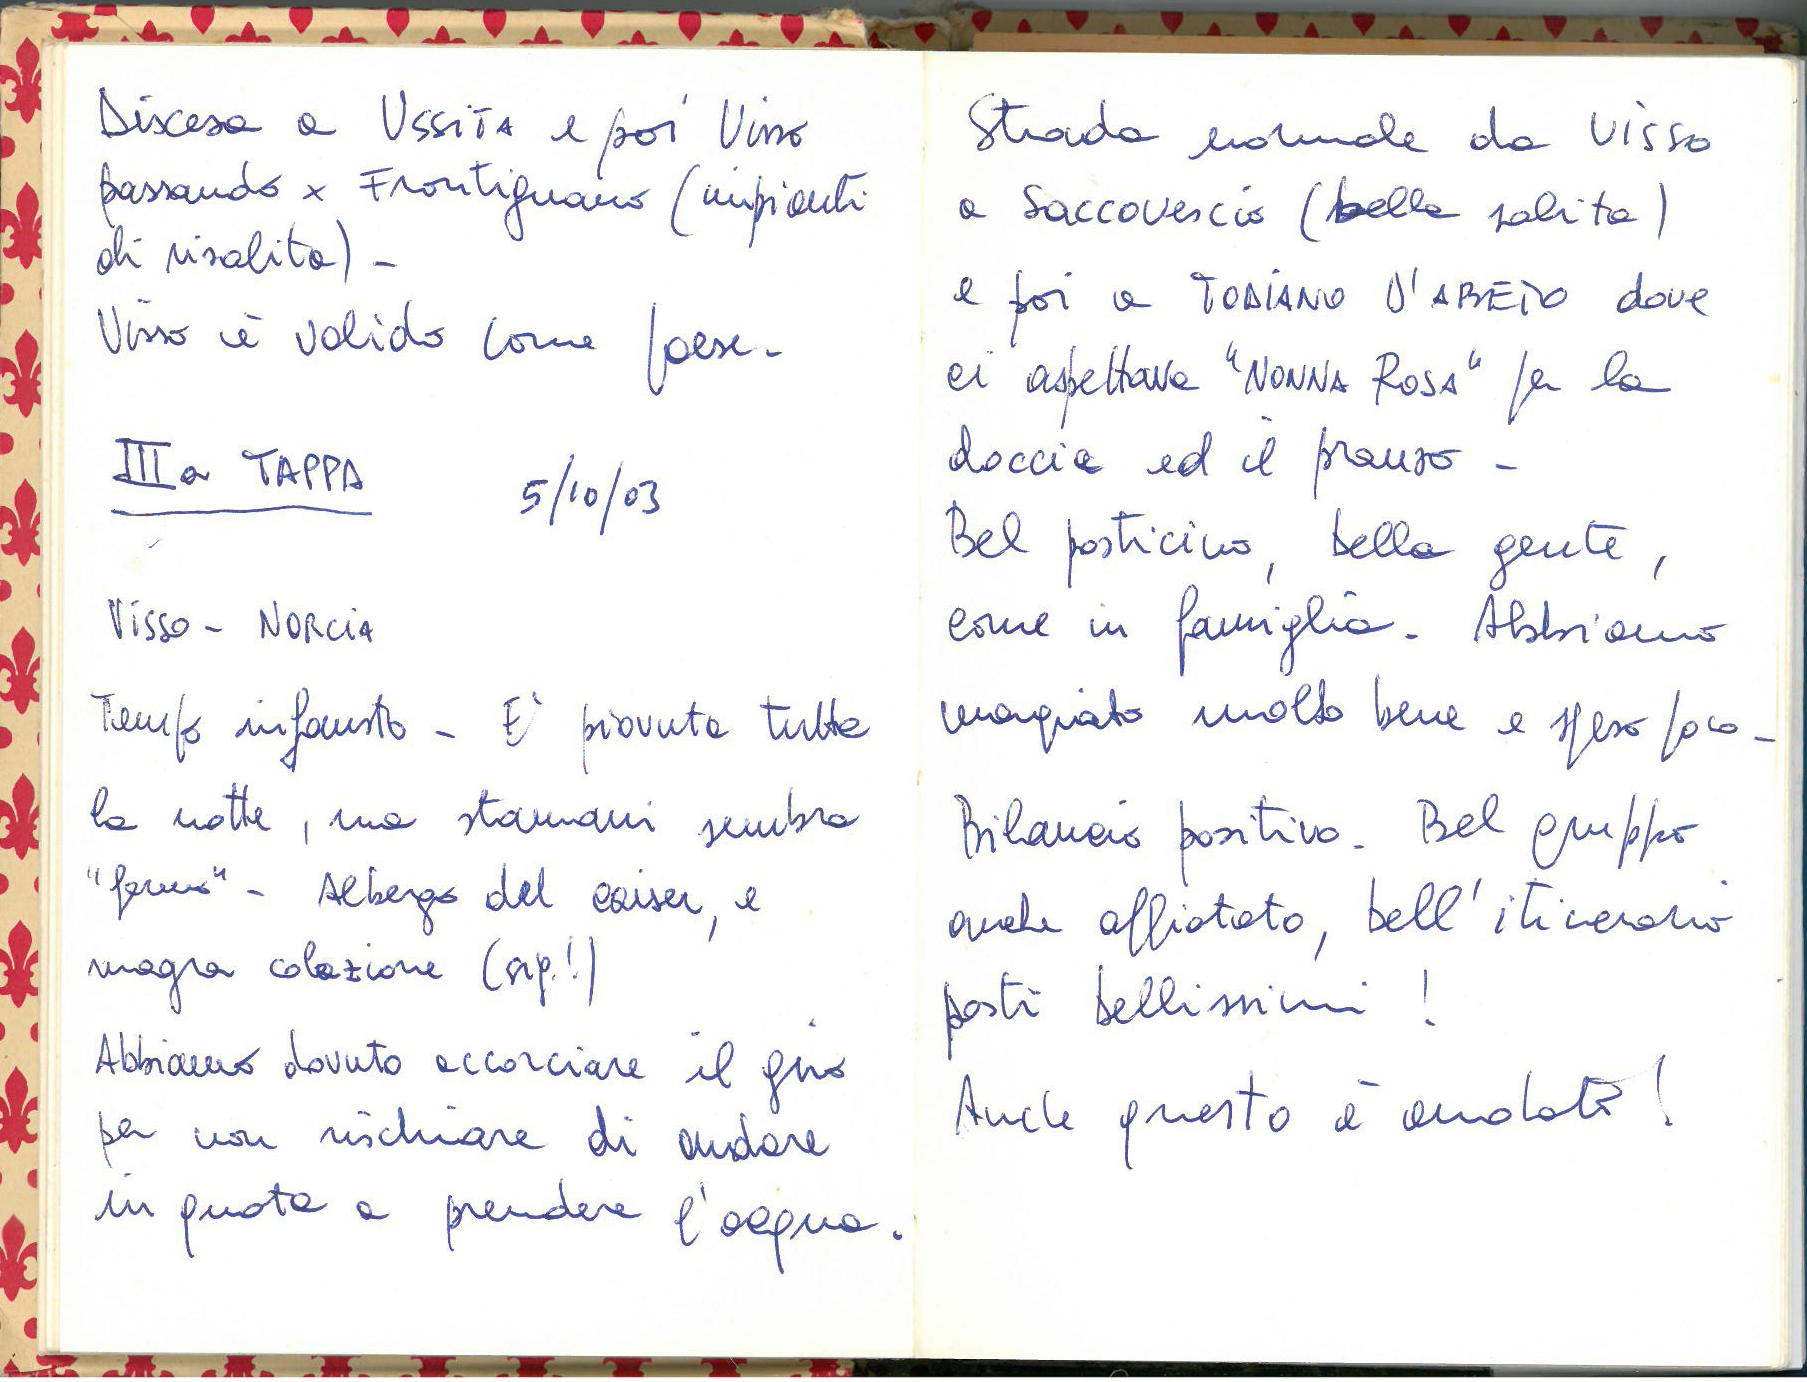 Discesa a USSITA e poi Visso
passando x Frontignano (impianti
di risalita) -
Visso è valido come paese -
IIIa TAPPA 5/10/03
Visso - NORCIA
Tempo infausto - E' piovuto tutta
la notte, ma stamani sembra
"fermo" - Albergo del caiser, e
magra colazione (sig.!)
Abbiamo dovuto accorciare il giro
per non rischiare di andare
in quota a prendere l'acqua.
Strada normale da Visso
a Saccovescio (bella salita)
e poi a TODIANO D'ABETO dove
ci aspettava "NONNA ROSA" per la
doccia ed il pranzo -
Bel posticino, bella gente,
come in famiglia. Abbiamo
mangiato molto bene e speso poco -
Bilancio positivo. Bel gruppo
anche affiatato, bell'itinerario
posti bellissimi !
Anche questo è andato !